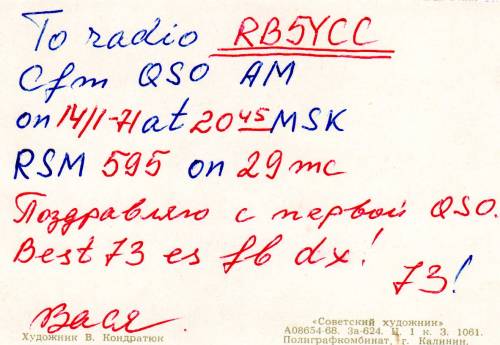 To radio RB5YCC
Cfm QSO AM
on 14/I-71 at 20 45 MSK
RSM 595 on 29 mc
Поздравляю с первой QSO.
Best 73 es fb dx!
73!
Вася
Художник В. Кондратюк
«Советский художник»
А08654-68. За-624. Ц. 1 к. З. 1061.
Полиграфкомбинат, г. Калинин.